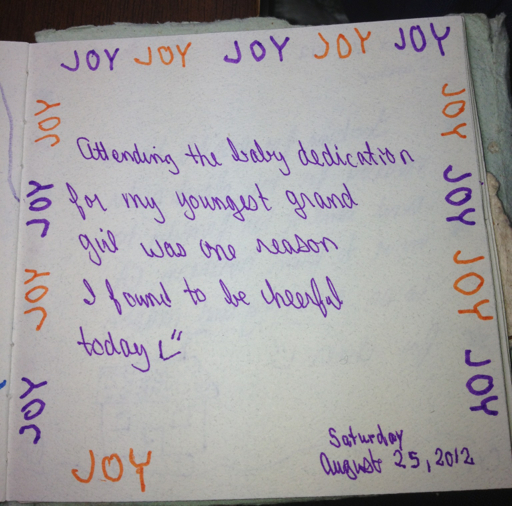 JOY JOY JOY JOY JOY
JOY
JOY
JOY
JOY
Attending the baby dedication
for my youngest grand
girl was one reason
I found to be cheerful
today
JOY
JOY
JOY
JOY
JOY
Saturday
August 25, 2012